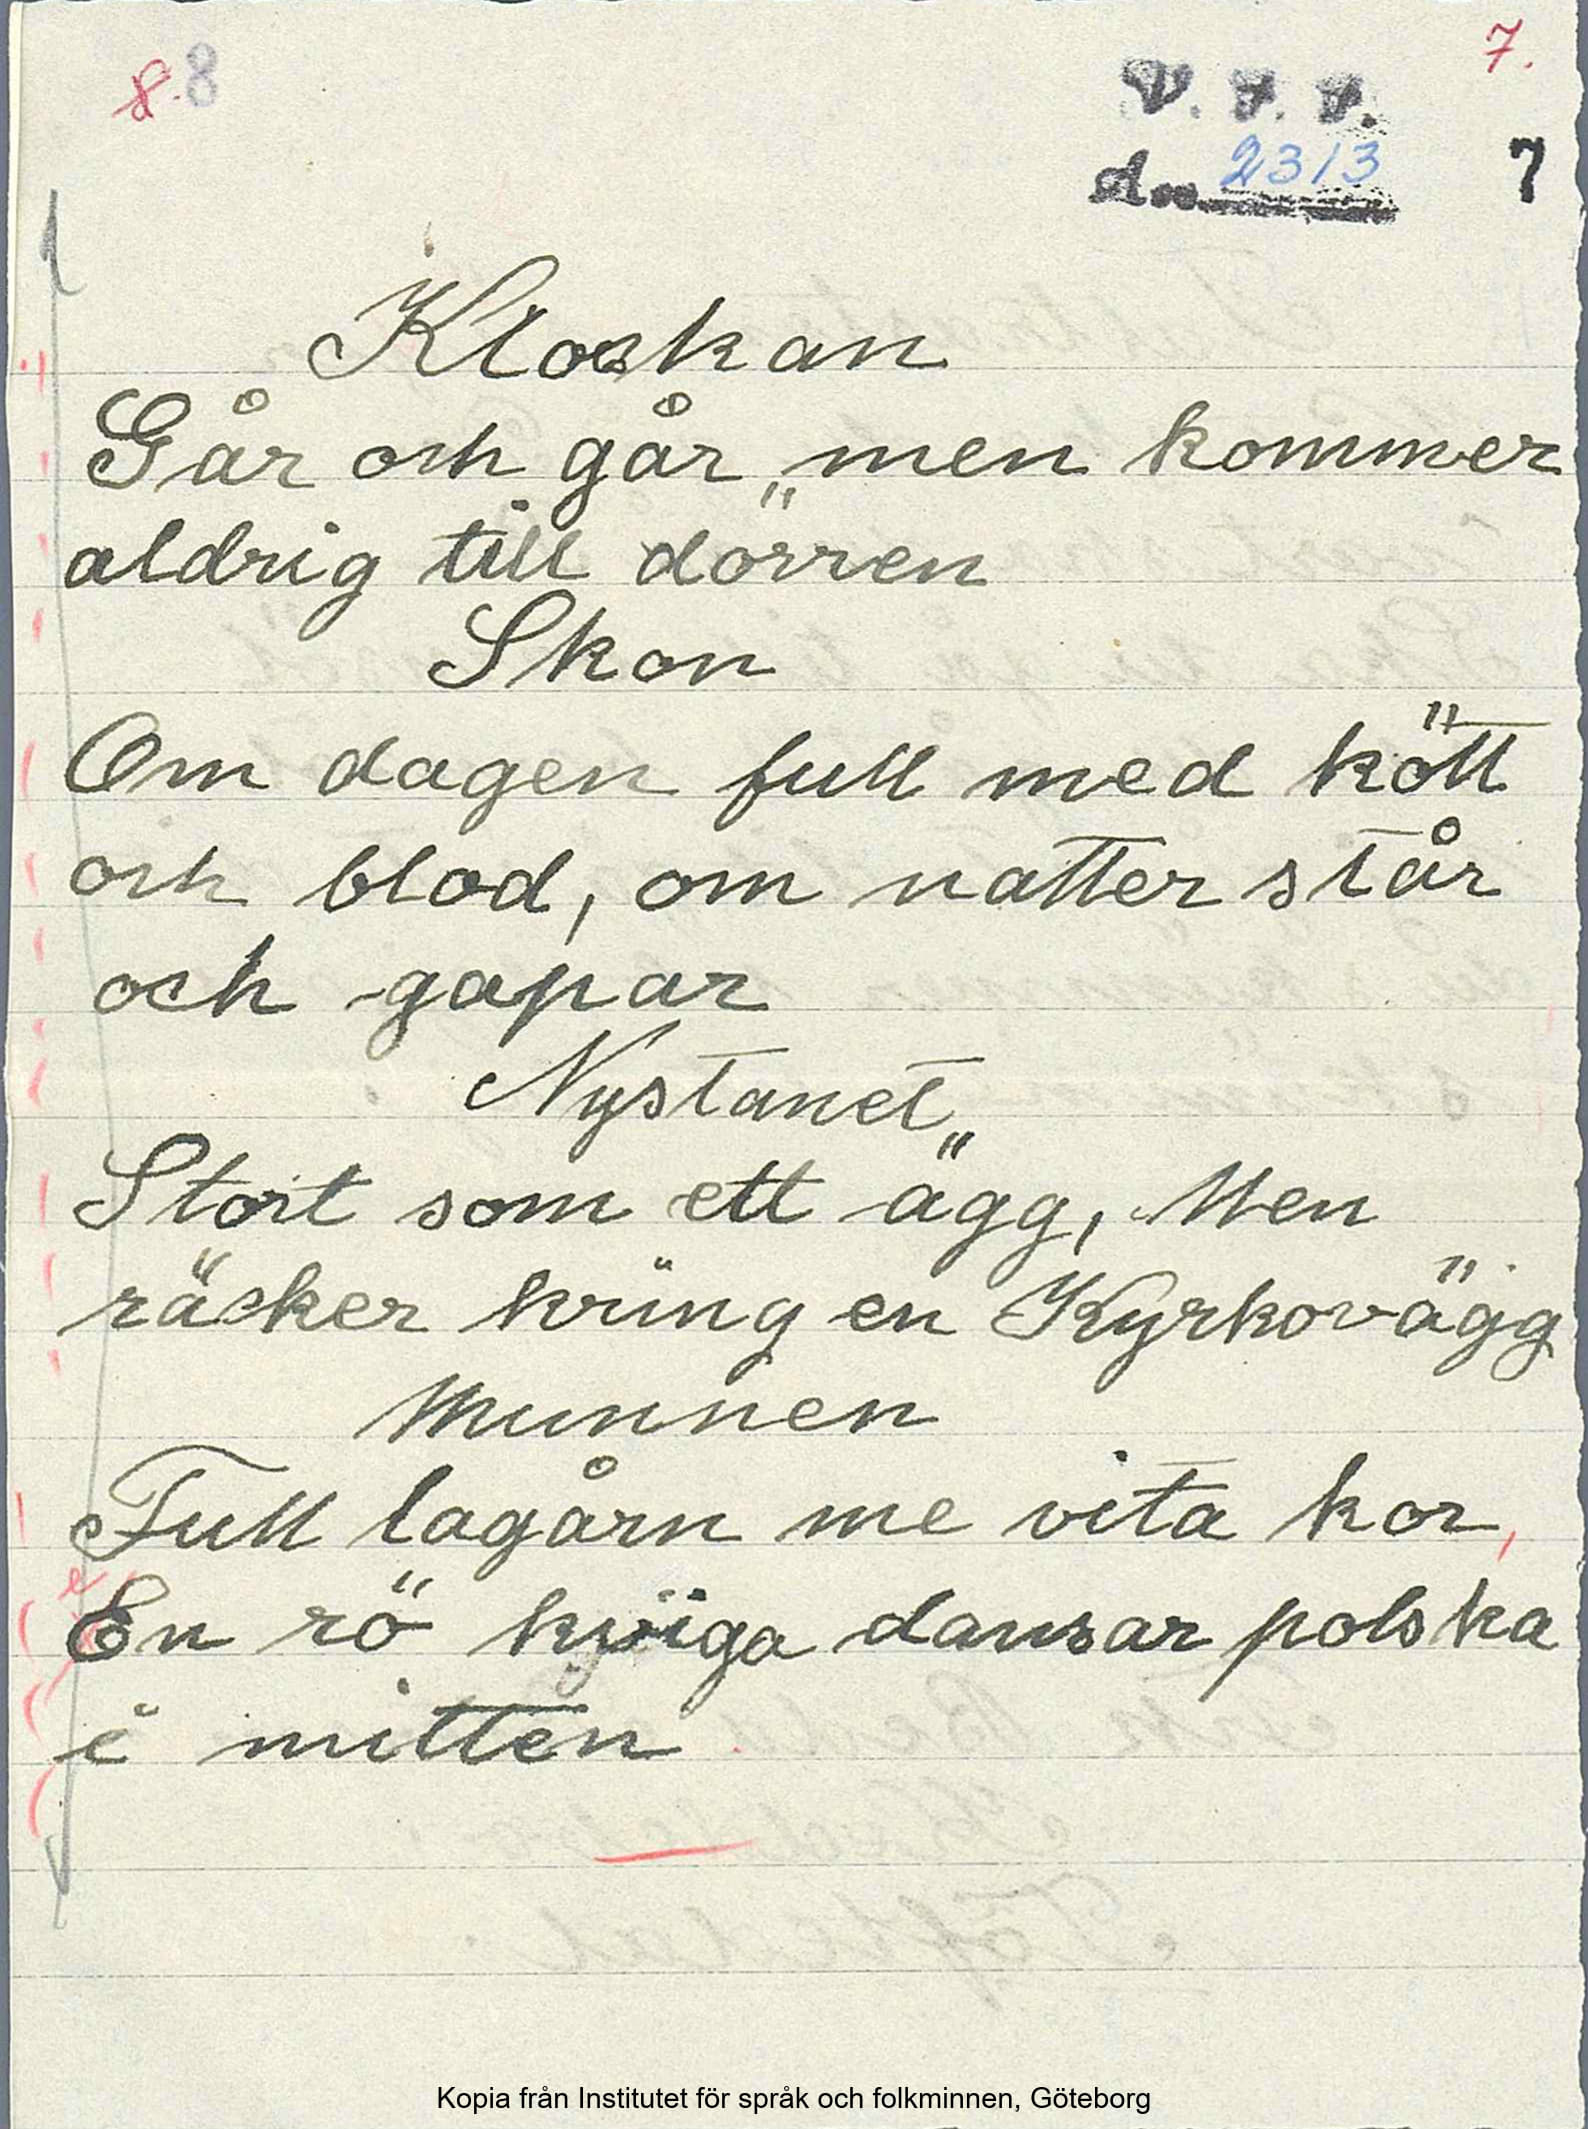 8. 8
7.
V. F. F.
Acc. 2313
7
Klockan
Går och går, men kommer
aldrig till dörren
Skon
Om dagen full med kött
och blod, om natter står
och gapar
Nystanet
Stort som ett ägg, Men
räcker kring en Kyrkovägg
Munnen
Full lagårn me vita kor,
En rö kviga dansar polska
i mitten
Kopia från Institutet för språk och folkminnen, Göteborg